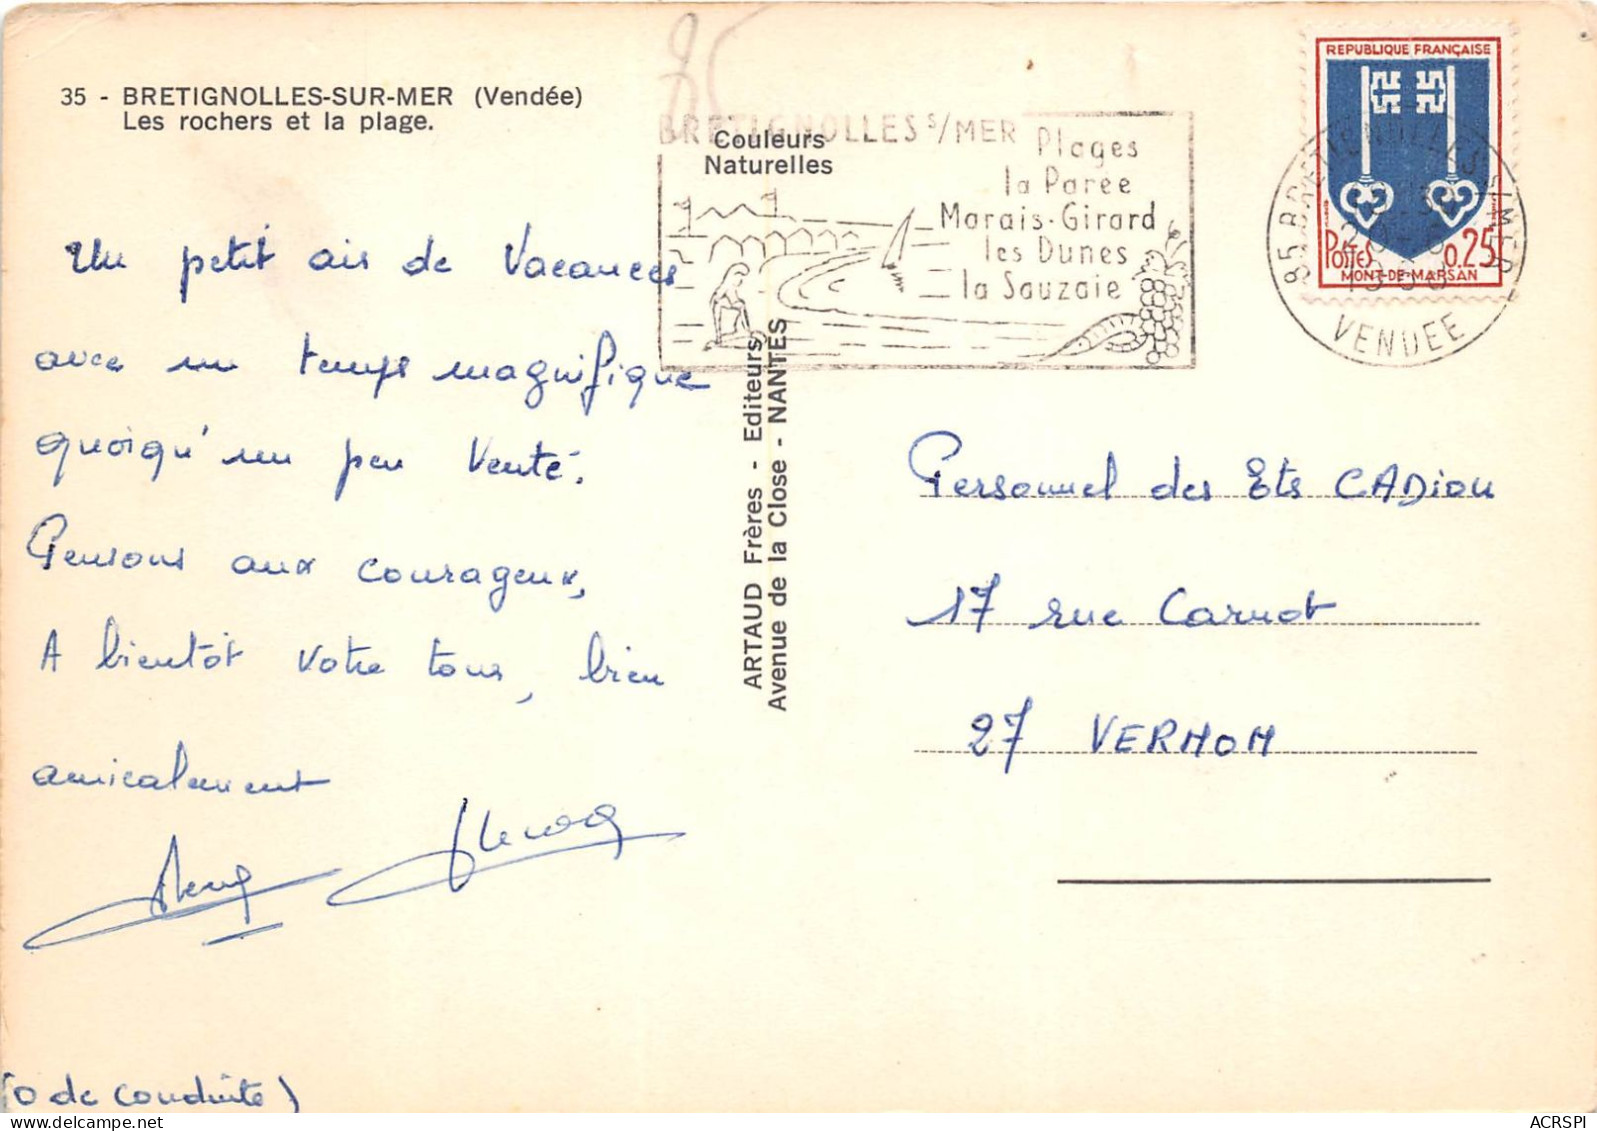 35 - BRETIGNOLLES-SUR-MER (Vendée)
Les rochers et la plage.
Couleurs
Naturelles
BRETIGNOLLES S/MER
Plages
la Parée
Marais-Girard
les Dunes
la Sauzaie
REPUBLIQUE FRANÇAISE
POSTES 0,25
MONT-DE-MARSAN
85 BRETIGNOLLES S/MER
VENDEE
Un petit air de Vacances
avec un temps magnifique
quoiqu'un peu Venté.
Pensons aux courageux,
A bientôt Votre tous, bien
amicalement
(0 de conduite)
ARTAUD Frères - Editeurs
Avenue de la Close - NANTES
Personnel des Ets CADiou
17 rue Carnot
27 VERNON
ACRSPI